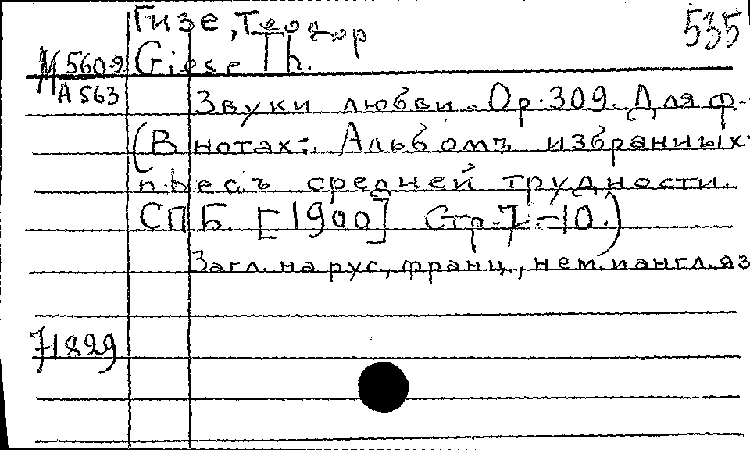 Гизе, Теодор 535
М 5609 Giese Th.
А 563
Звуки любви. Op. 309. Для ф-
(В нотах: Альбомъ избранных
пьесъ средней трудности.
СПБ. [1900] Стр. 7-10.)
Загл. на рус., франц., нем. и англ. яз
71829